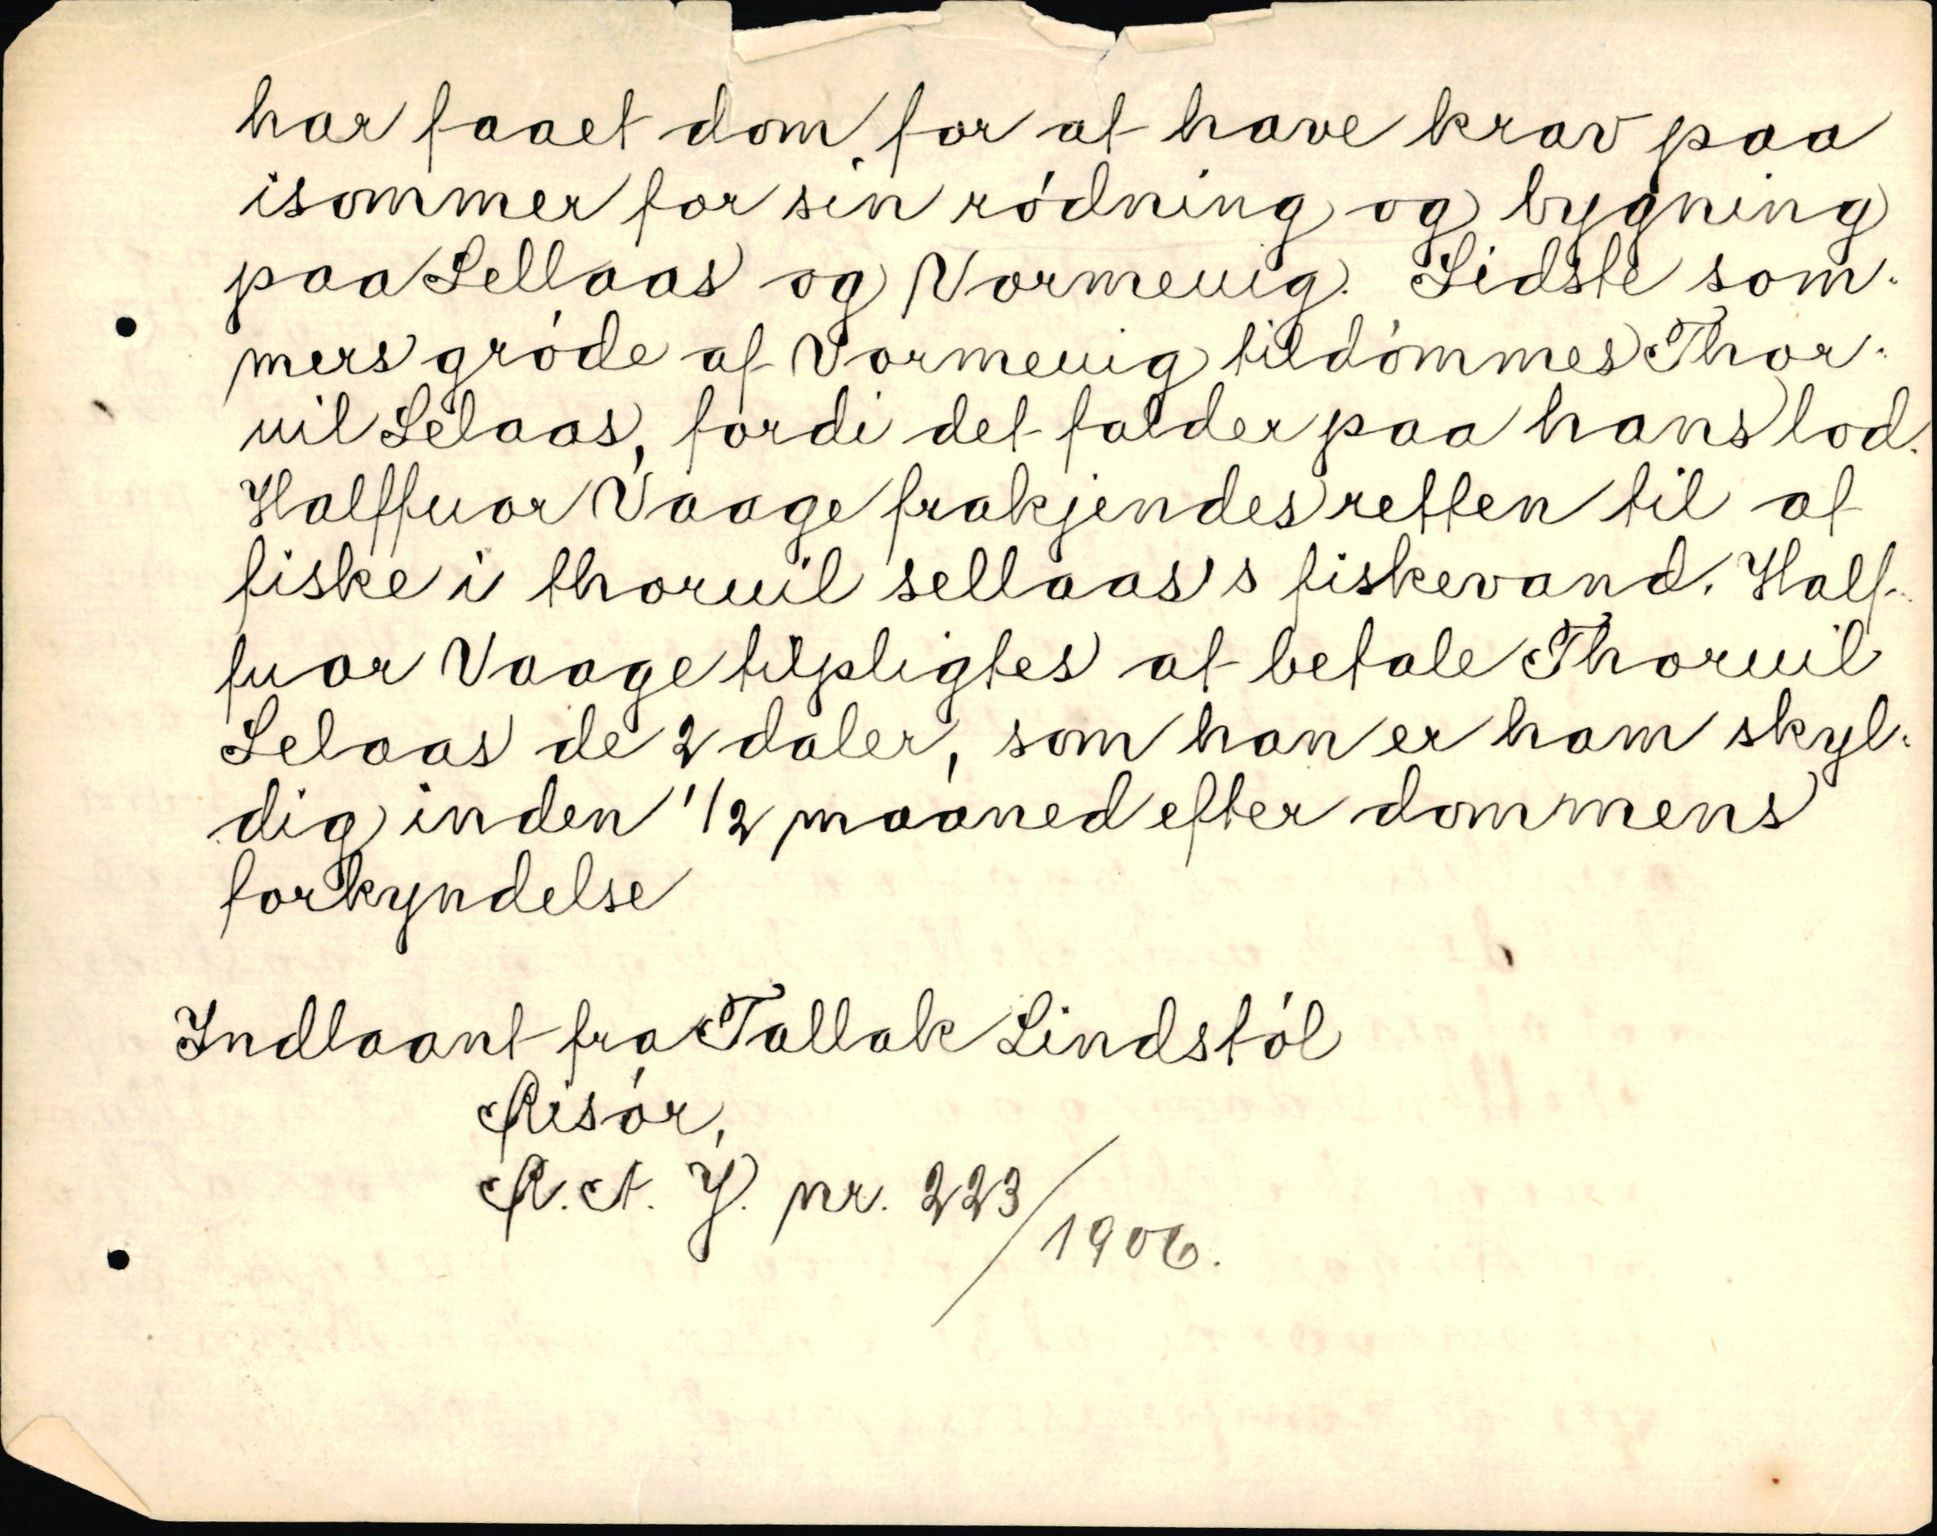 har faaet dom for at have krav paa
isommer for sin rödning og bygning
paa Sellaas og Vormeuig. Sidste som-
mers gröde af Vormeuig tildömmes Thor-
uil Selaas, fordi det falder paa hans lod.
Halffuor Vaage frakjendes retten til at
fiske i thoruil sellaas's fiskevand. Half-
fuor Vaage tilpligtes at betale Thoruil
Selaas de 2 daler, som han er ham skyl-
dig inden 1/2 maaned efter dommens
forkyndelse
Indlaant fra Tallak Lindstöl
Risör,
R. A. J. nr. 223/1906.